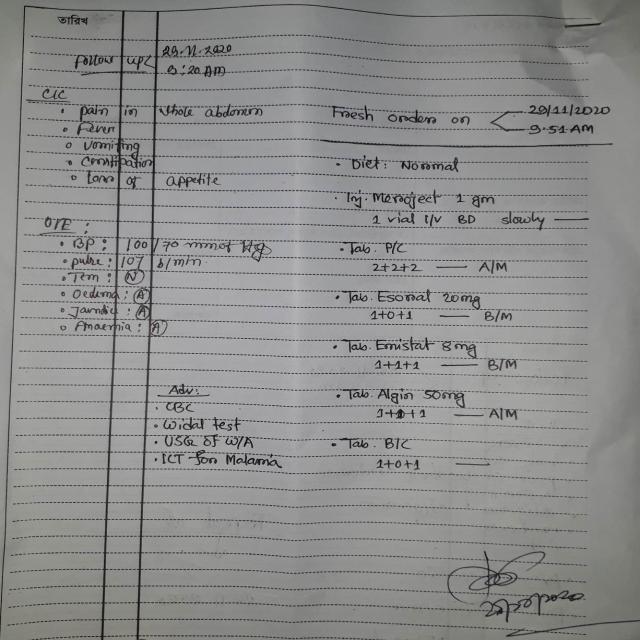 তারিখ
Follow up
29.11.2020
8:20 AM
C/C
• Pain in whole abdomen
• Fever
• vomiting
• Constipation
• Loss of appetite
O/E :
• BP : 100/70 mmof Hg
• pulse : 107 b/min
• Tem : N
• Oedema : A
• Jaundice : A
• Anaemia : A
Adv:
• CBC
• Widal test
• USG of W/A
• ICT for Malaria
Fresh order on
29/11/2020
9.51 AM
• Diet : Normal
• Inj. Meroject 1 gm
1 vial I/V BD slowly —
• Tab. P/C
2+2+2 — A/M
• Tab. Esonal 20mg
1+0+1 — B/M
• Tab. Emistat 8mg
1+1+1 — B/M
• Tab. Algin 50mg
1+1+1 — A/M
• Tab. B/C
1+0+1 —